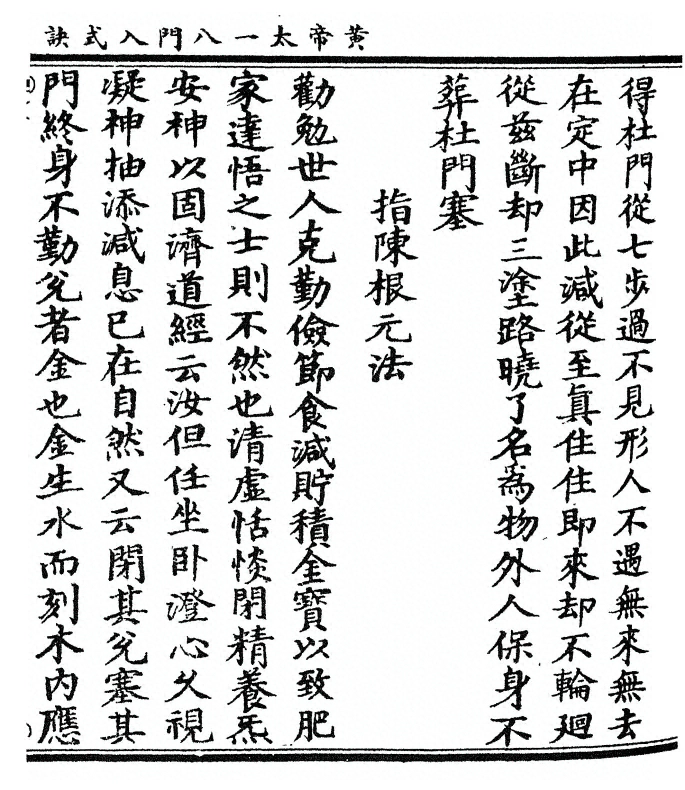 黃帝太一八門入式訣
得杜門從七步過不見形人不遇無來無去
在定中因此減從至眞住住即來却不輪廻
從茲斷却三塗路曉了名爲物外人保身不
葬杜門塞
指陳根元法
勸勉世人克勤儉節食減貯積金寶以致肥
家達悟之士則不然也清虛恬惔閉精養炁
安神以固濟道經云汝但任坐卧澄心久視
凝神抽添減息已在自然又云閉其兌塞其
門終身不勤兌者金也金生水而刻木內應